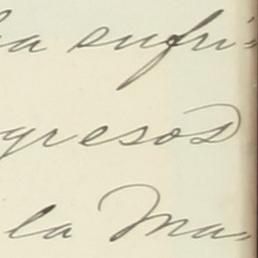 ha sufri=
gresos
la Ma=